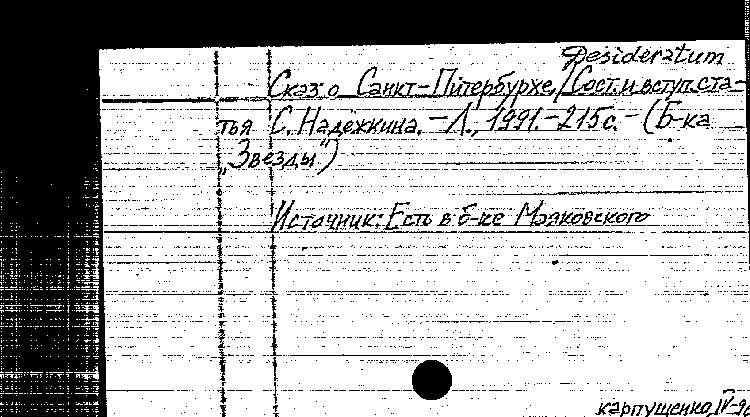 Desideratum
Сказ о Санкт-Питербурхе./Сост. и вступ. ста-
тья С. Надёжкина. - Л., 1991. - 215с. - (Б-ка
„Звезды")
Источник: Есть в б-ке Маяковского
Карпущенко IV-9